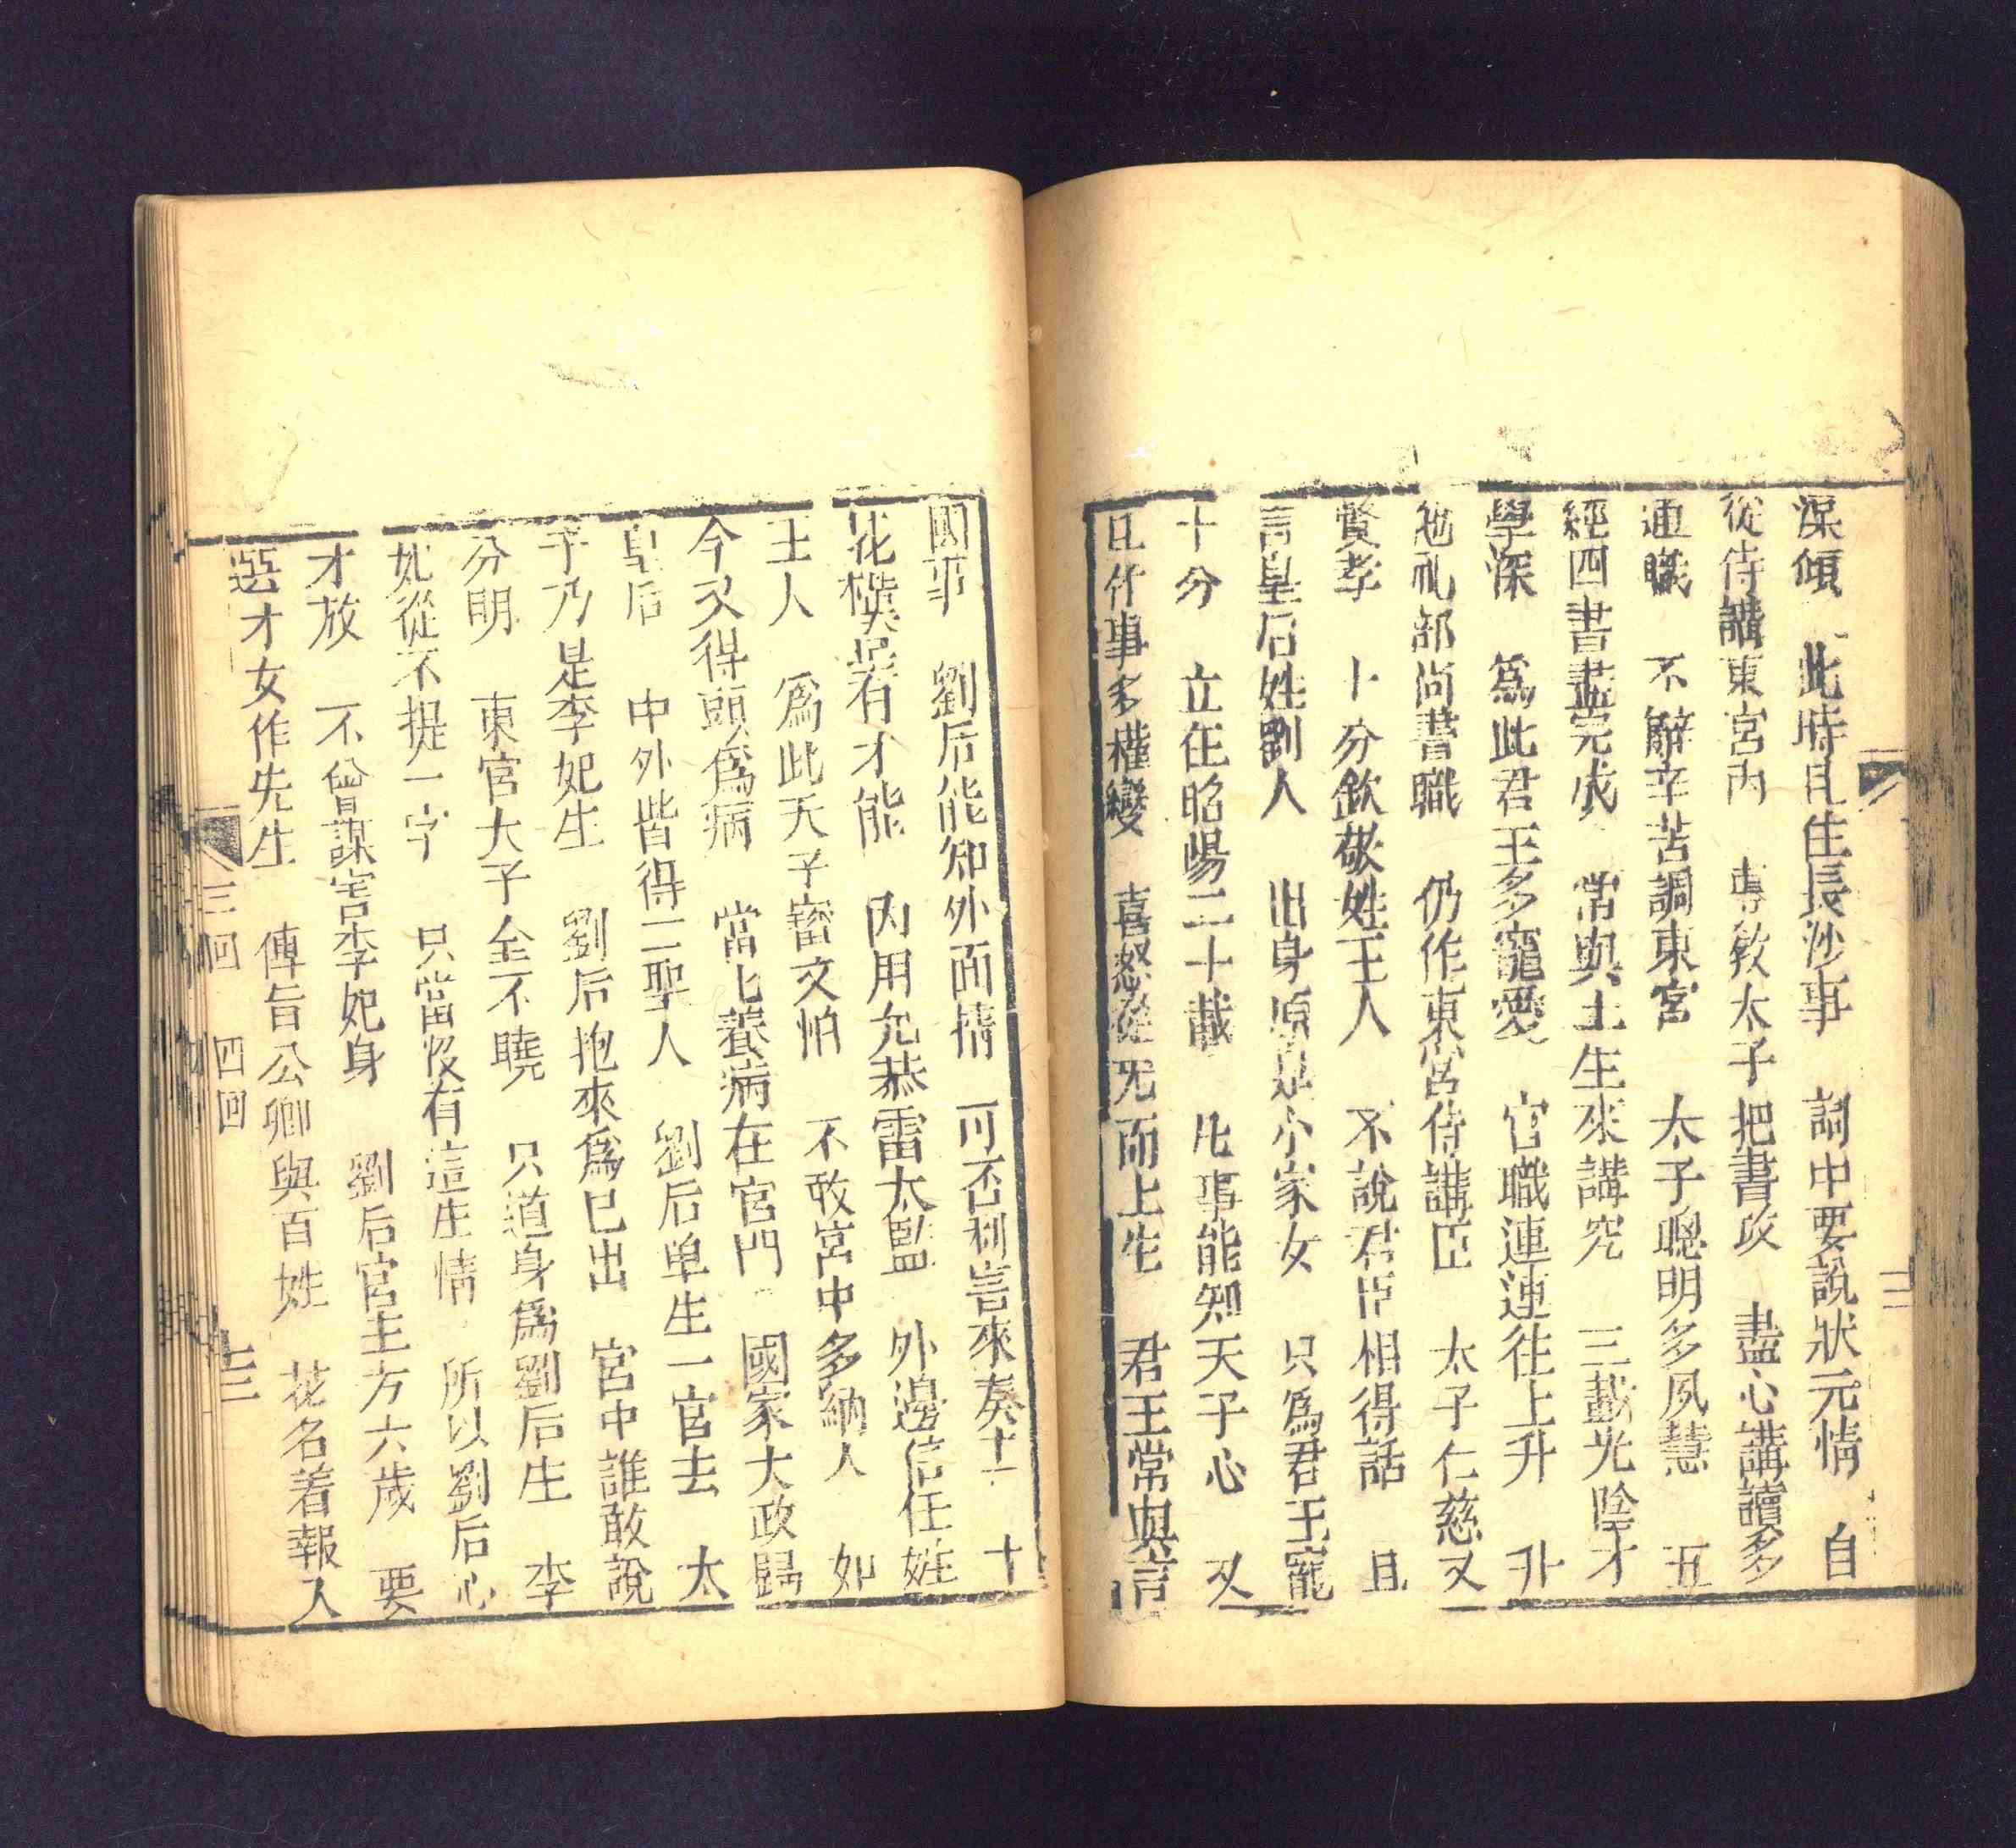 深傾　此時且住長沙事　詞中要說狀元情　自
從侍講東宮內　專教太子把書攻　盡心講讀多
通職　不辭辛苦調東宮　太子聰明多夙慧　五
經四書盡完成　常與士生來講究　三載光陰才
學深　爲此君王多寵愛　官職連連往上升　升
礼部尚書職　仍作東宮侍講臣　太子仁慈又
賢孝　十分欽敬姓王人　不說君臣相得話　且
言皇后姓劉人　出身原是小家女　只爲君王寵
十分　立在昭陽二十載　凡事能知天子心　又
且作事多權變　喜怒從无而上生　君王常與言
國事　劉后能知外面情　可否利害來奏上　十
花樣有才能　內用允恭雷太監　外邊信任姓
王人　爲此天子審文怕　不敢宮中多納人　如
今又得頭爲病　當匕養病在官門　國家大政歸
皇后　中外皆得二聖人　劉后单生一官去　太
子乃是李妃生　劉后抱來爲已出　宮中誰敢說
分明　東官大子全不曉　只道身爲劉后生　李
妃從不提一字　只當沒有這庄情　所以劉后心
才放　不曾謀害李妃身　劉后官主方六歲　要
選才女作先生　傳旨公卿與百姓　花名着報入
三回　四回　三